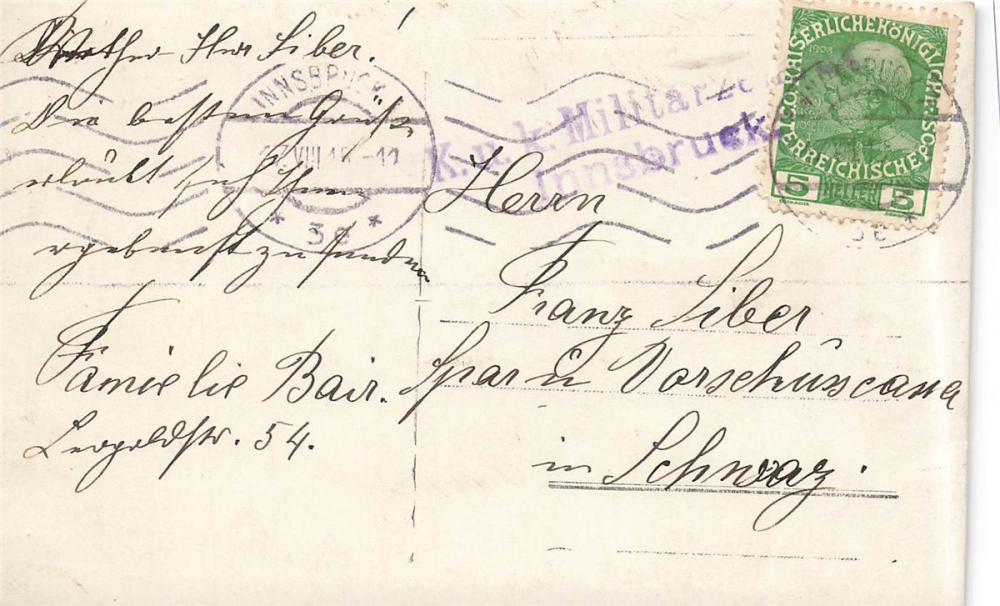 Werther Herr Siber!
Die besten Grüße
erlaubt sich Ihnen
ergebenst zu senden
Familie Bair.
Leopoldstr. 54.
INNSBRUCK
VIII
* 3e *
K. u. k. Militärze
Innsbruck.
KAISERLICHEKÖNIGLICHE
ÖSTERREICHISCHE
1908
5 HELLER 5
Herrn
Franz Siber
Spar u Vorschusscassa
in Schwaz.